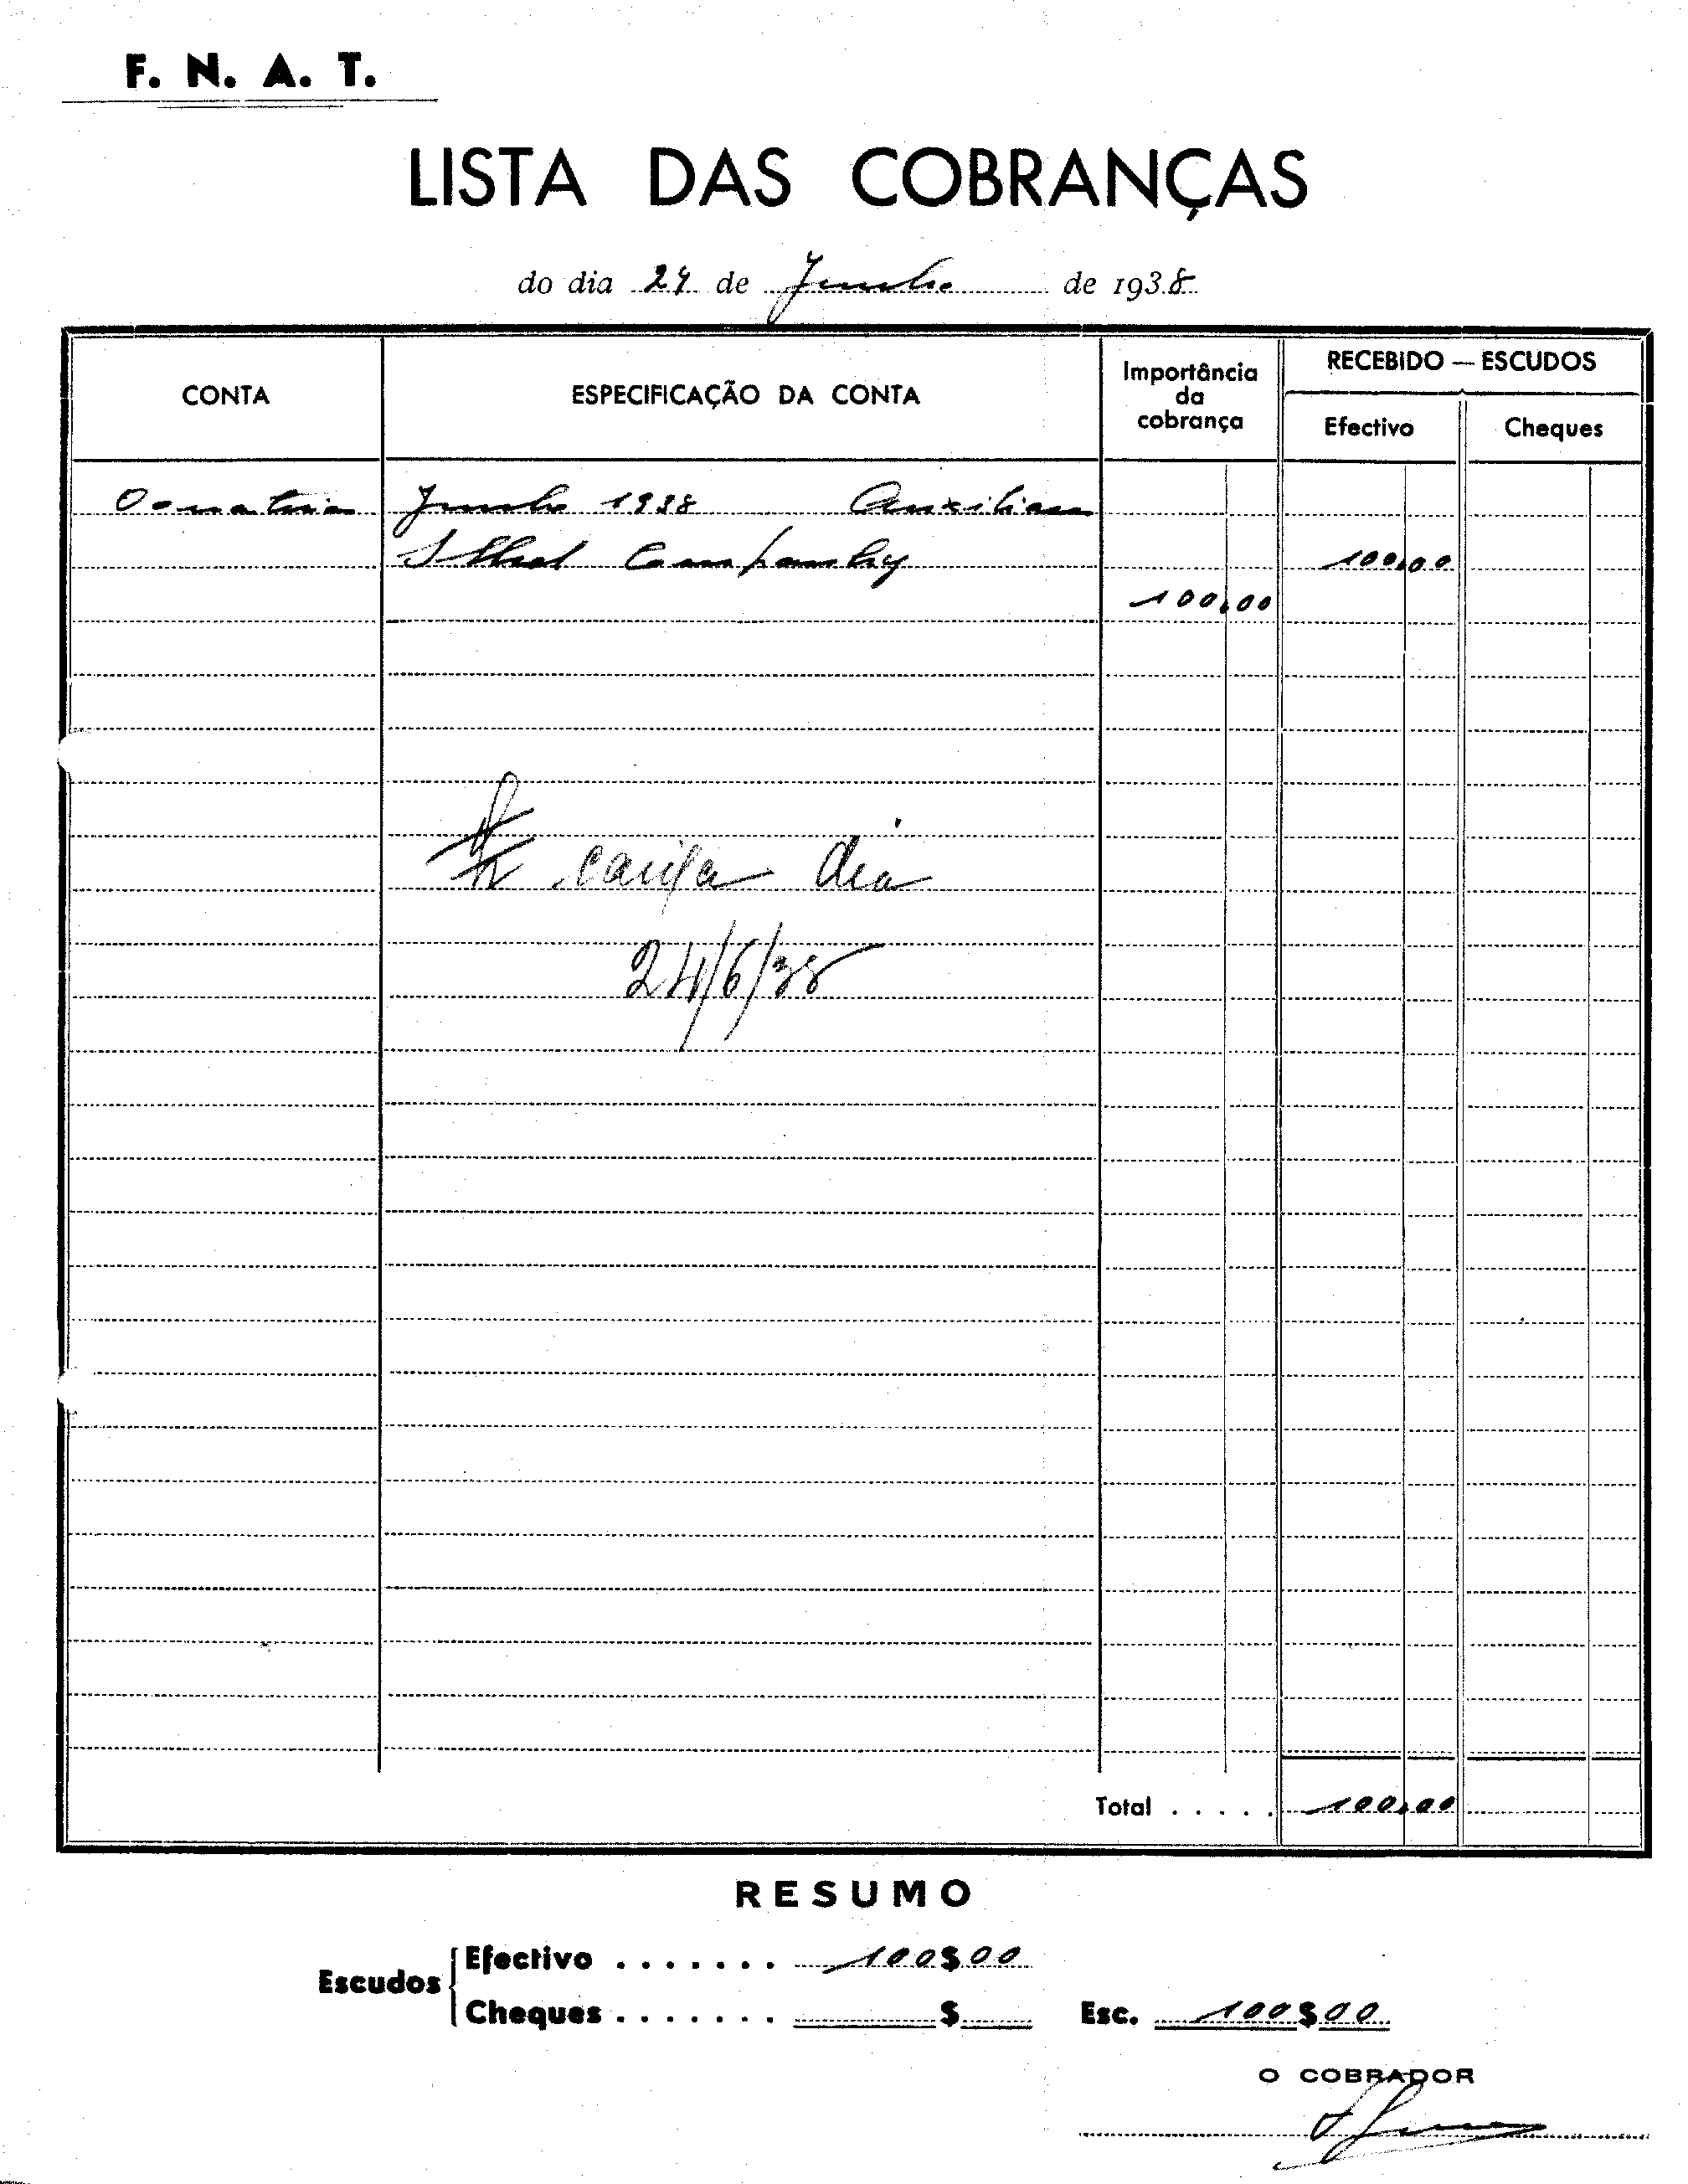 F. N. A. T.
LISTA DAS COBRANÇAS
do dia 24 de Junho de 1938
CONTA
ESPECIFICAÇÃO DA CONTA
Importância
da
cobrança
RECEBIDO — ESCUDOS
Efectivo
Cheques
Junho 1938 Auxiliar
Shell Company 100,00
100,00
caixa dia
24/6/38
Total . . . . . 100,00
RESUMO
Escudos
Efectivo . . . . . . . 100$00
Cheques . . . . . . . $
Esc. 100$00
O COBRADOR